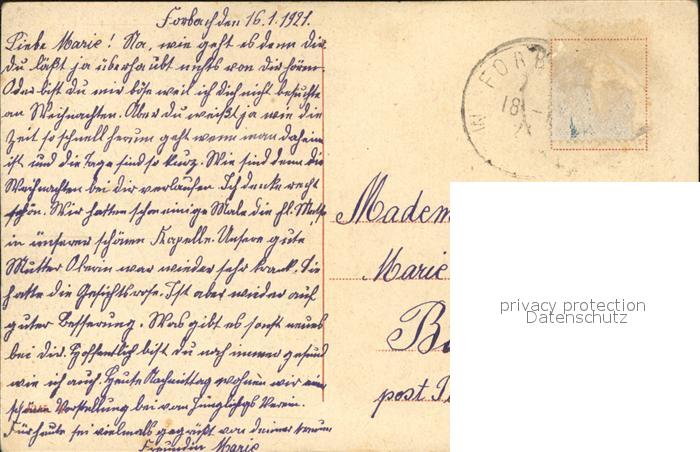 Forbach den 16.1.1921.
Liebe Marie! Na, wie geht es denn dir
du läßt ja überhaubt nichts von dir hören.
Oder bist du mir böse weil ich dich nicht besuchte
an Weihnachten. Aber du weißt ja wie die
Zeit so schnell herum geht wenn man daheim
ist und die Tage sind so kurz. Wie sind denn die
Weihnachten bei dir verlaufen. Ich denke recht
schön. Wir hatten schon einige Male die hl. Messe
in unserer schönen Kapelle. Unsere gute
Mutter Oberin war wieder sehr krank. Sie
hatte die Gesichtsrose. Ist aber wieder auf
guter Besserung. Was gibt es sonst neues
bei dir. Hoffentlich bist du noch immer gesund
wie ich auch. Heute Nachmittag wohnen wir einer
schönen Vorstellung bei vom Jünglichgs Verein.
Für heute sei vielmals gegrüßt von deiner treuen
Freundin Marie
FORB
18
Madem
Marie
B
post
privacy protection
Datenschutz